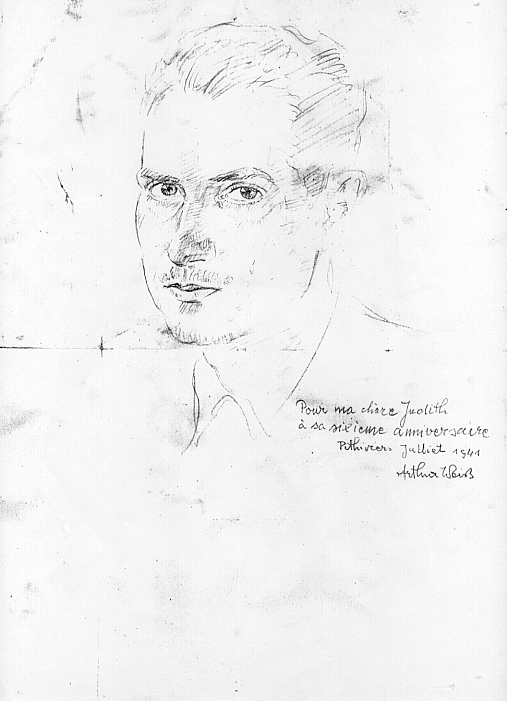 Pour ma chère Judith
à sa sixieme anniversaire
Pithiviers Julliet 1941
Arthur Weiß